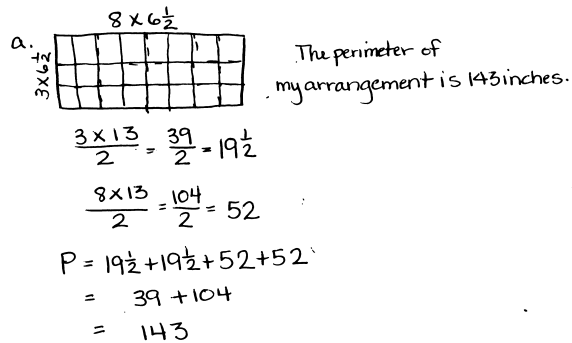 8 × 6 1/2
a.
3 × 6 1/2
The perimeter of
my arrangement is 143 inches.
3 × 13 / 2 = 39 / 2 = 19 1/2
8 × 13 / 2 = 104 / 2 = 52
P = 19 1/2 + 19 1/2 + 52 + 52
= 39 + 104
= 143